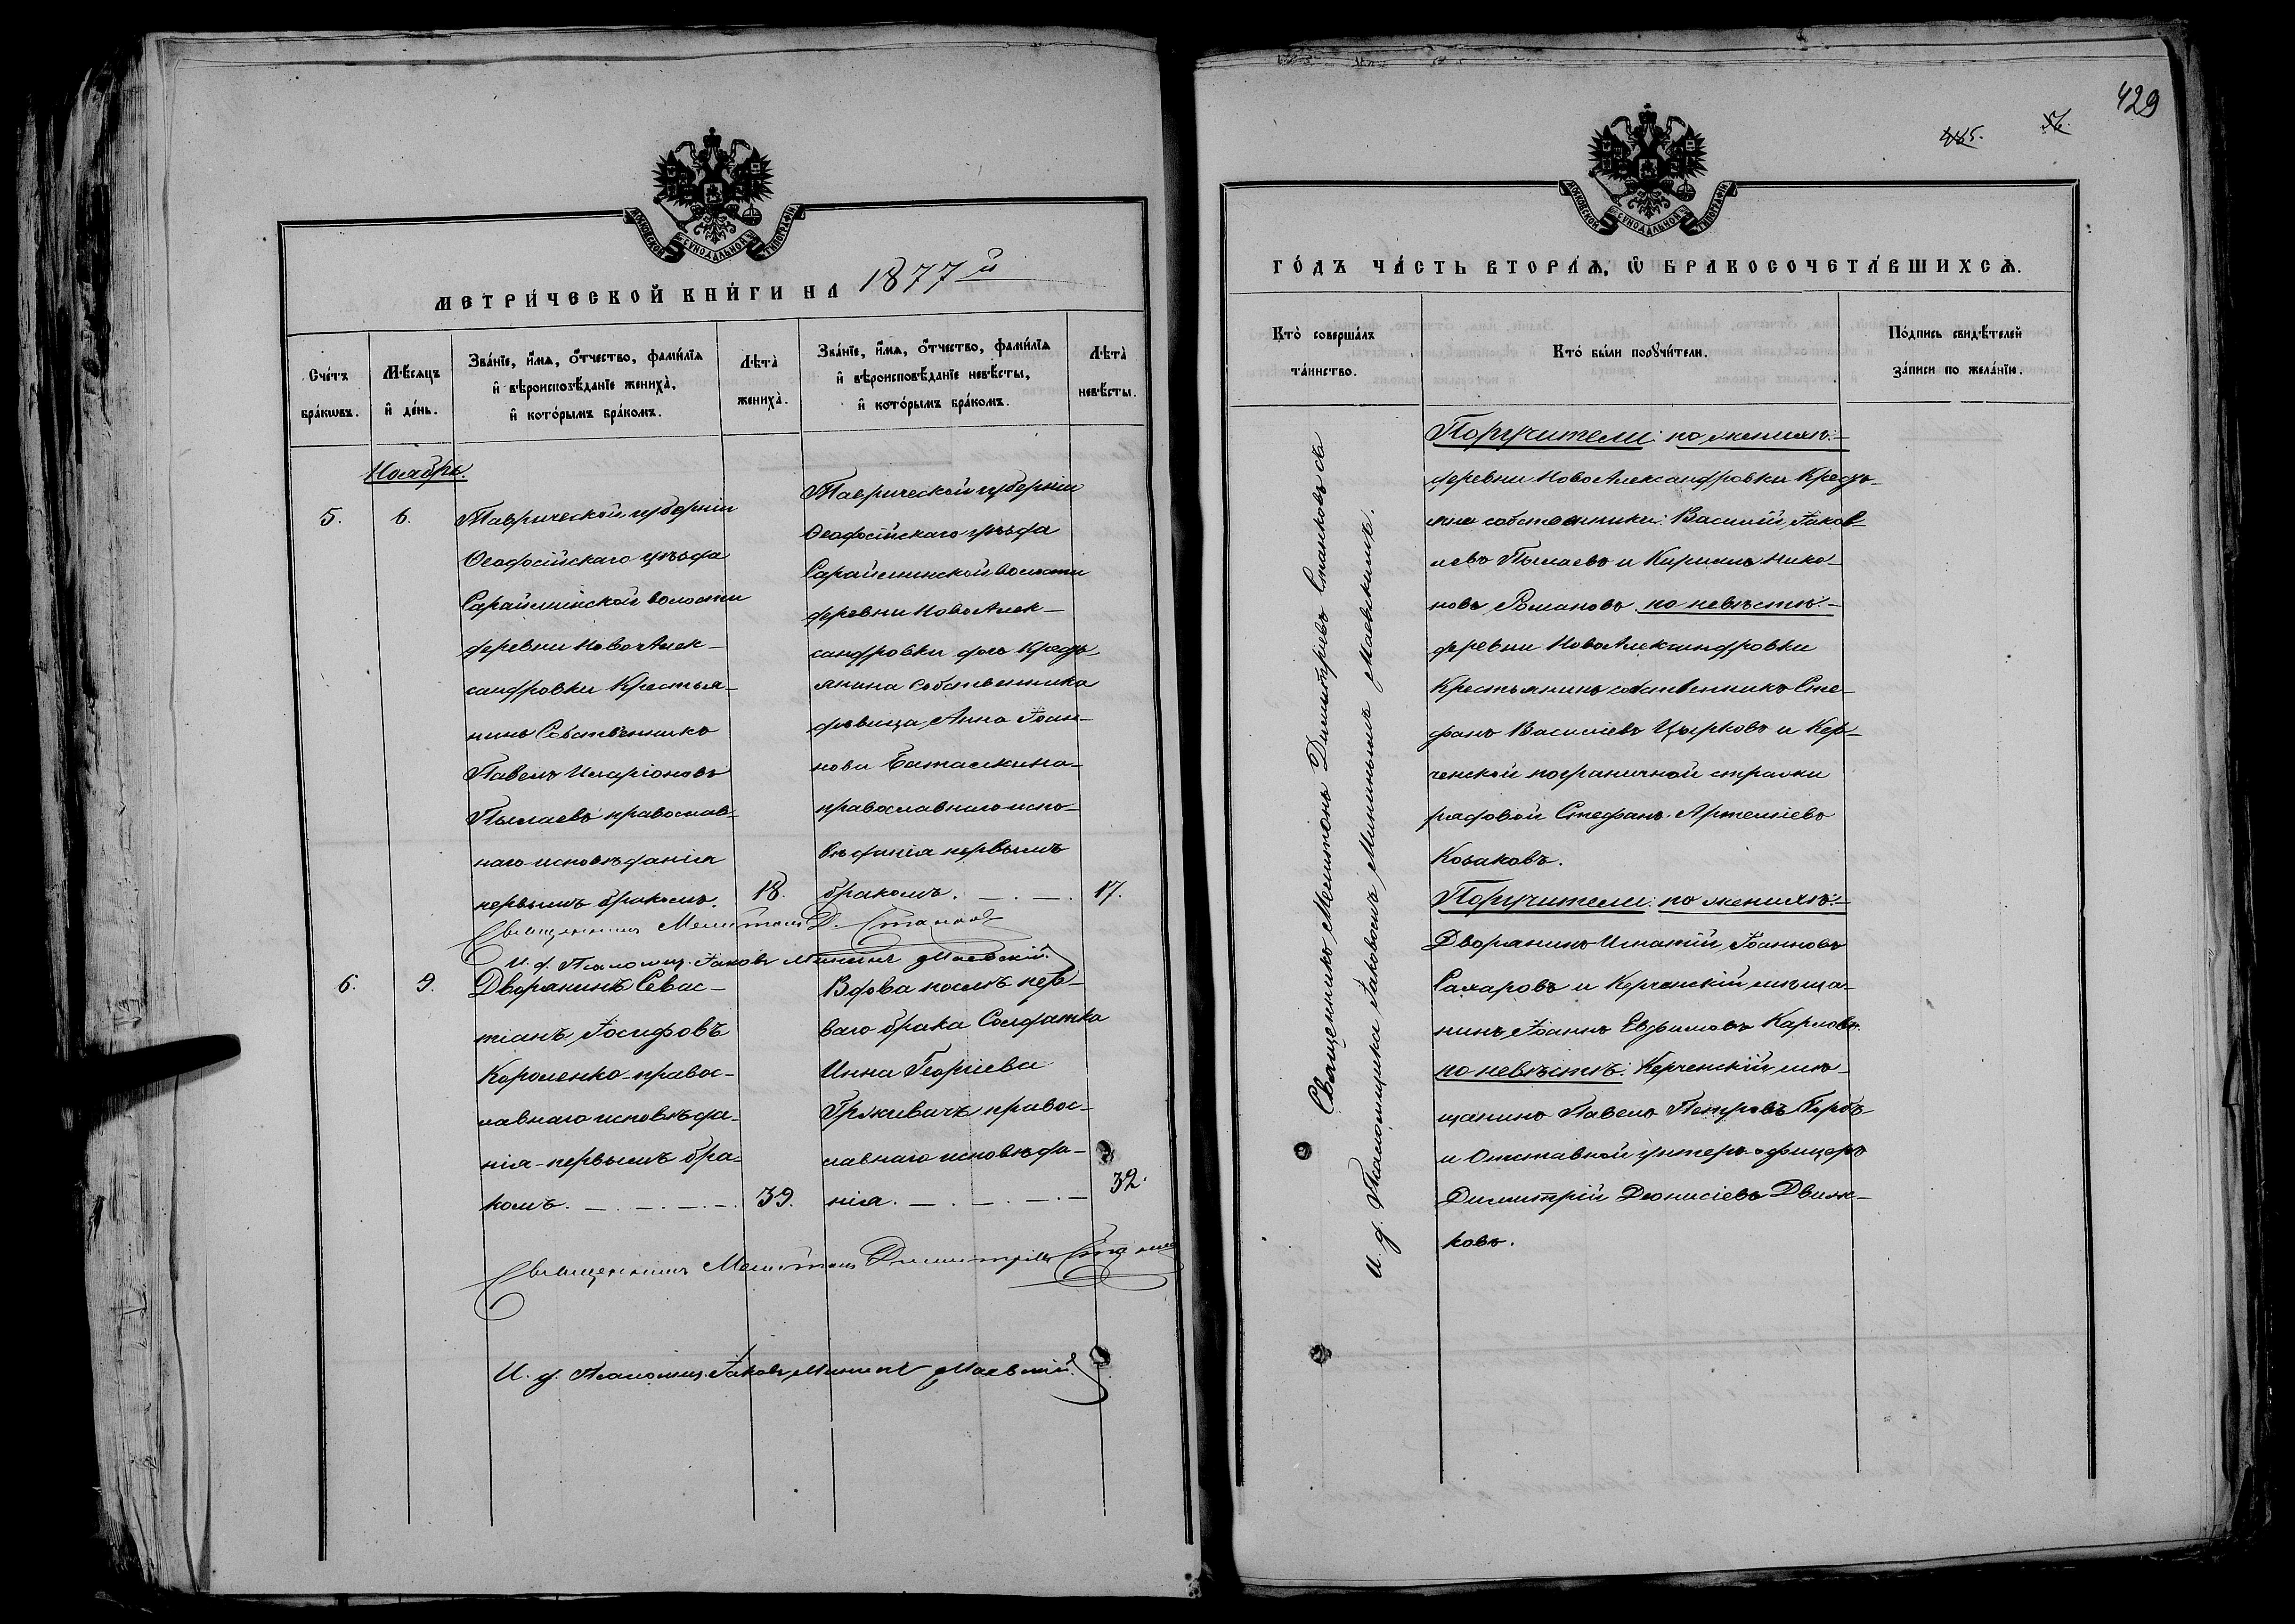 МОСКОВСКОЙ СѴНОДАЛЬНОЙ ТИПОГРАФІИ
МЕТРИ́ЧЕСКОЙ КНИ́ГИ НА 1877й
Сче́тъ бра́кѡвъ.
Мѣ́сяцъ и҆ де́нь.
Зва́нїе, и҆́мѧ, ѻ҆́тчество, фами́лїѧ
и҆ вѣроисповѣ́данїе жениха̀,
и҆ кото́рымъ бра́комъ.
Лѣта̀ жениха̀.
Зва́нїе, и҆́мѧ, ѻ҆́тчество, фами́лїѧ
и҆ вѣроисповѣ́данїе невѣ́сты,
и҆ кото́рымъ бра́комъ.
Лѣта̀ невѣ́сты.
Ноябрь.
5.
6.
Таврической губерніи
Ѳеодосійскаго уѣзда
Сарайминской волости
деревни НовоАлек-
сандровки Крестья-
нинъ Собственникъ
Павелъ Иларіоновъ
Пылаевъ православ-
наго исповѣданія
первымъ бракомъ.
18.
Таврической губерніи
Ѳеодосійскаго уѣзда
Сарайминской волости
деревни НовоАлек-
сандровки дочь Кресть-
янина Собственника
дѣвица Анна Іоан-
нова Баташкина-
православнаго испо-
вѣданія первымъ
бракомъ. —.—.
17.
Священникъ Мелитонъ Д. Станковъ
И. д. Псаломщ. Іаковъ Мининъ Маевскій.
6.
9.
Дворянинъ Севас-
тіанъ Іосифовъ
Короленко-правос-
лавнаго исповѣда-
нія-первымъ бра-
комъ. —.—.—.—.
39.
Вдова послѣ пер-
ваго брака Солдатка
Инна Георгіева
правос-
лавнаго исповѣда-
нія. —.—.—.—
32.
Священникъ Мелитонъ Димитріевъ
И. д. Псаломщ. Іаковъ Мининъ Маевскій.
429
МОСКОВСКОЙ СѴНОДАЛЬНОЙ ТИПОГРАФІИ
ГО́ДЪ ЧА́СТЬ ВТОРА́Ѧ, Ѡ҆ БРАКОСОЧЕТА́ВШИХСѦ.
Кто̀ соверша́лъ
та́инство.
Кто́ бы́ли порꙋчи́тели.
По́дпись свидѣ́телей
за́писи по жела́нїю.
Священникъ Мелитонъ Димитріевъ Станковъ съ
И. д. Псаломщика Іаковомъ Мининымъ Маевскимъ.
Поручители: по женихѣ:-
деревни НовоАлександровки Кресть-
яне собственники: Василій Іаков-
левъ Пылаевъ и Кириллъ Нико-
новъ Романовъ. по невѣстѣ:-
деревни НовоАлександровки
Крестьянинъ собственникъ Сте-
фанъ Василіевъ Цырковъ и Кер-
ченской пограничной стражи
рядовой Стефанъ Артеміевъ
Козаковъ.
Поручители: по женихѣ:-
Дворянинъ Игнатій Іоанновъ
Сахаровъ и Керченскій мѣща-
нинъ Іоаннъ Евфимовъ Карповъ.
по невѣстѣ: Керченскій мѣ-
щанинъ Павелъ Петровъ
и Отставной унтеръ-офицеръ
Димитрій Діонисіевъ Движ-
ковъ.